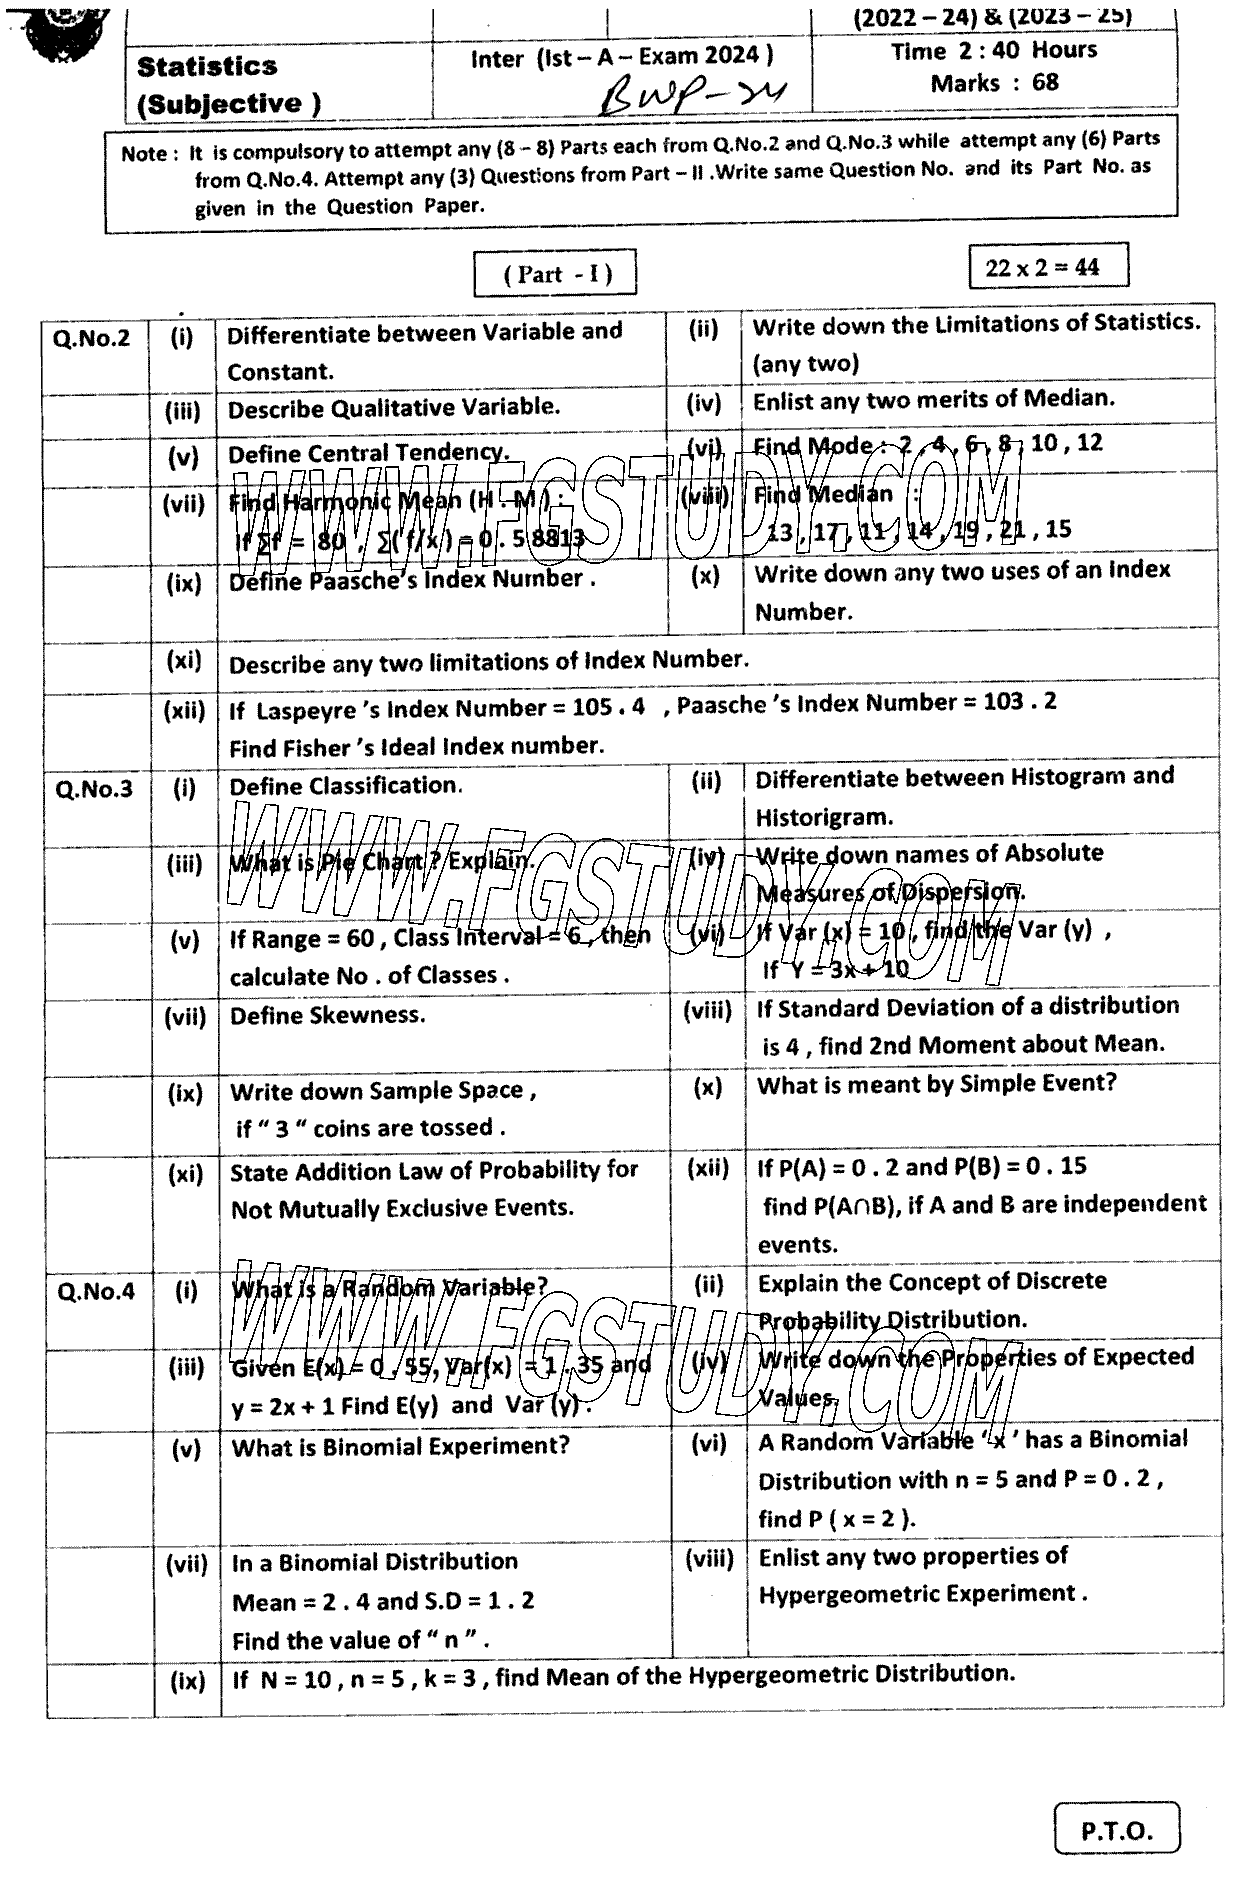 (2022 – 24) & (2023 – 25)
Statistics
(Subjective )
Inter (Ist – A – Exam 2024 )
BWP-24
Time 2 : 40 Hours
Marks : 68
Note : It is compulsory to attempt any (8 – 8) Parts each from Q.No.2 and Q.No.3 while attempt any (6) Parts
from Q.No.4. Attempt any (3) Questions from Part – II .Write same Question No. and its Part No. as
given in the Question Paper.
( Part - I )
22 x 2 = 44
Q.No.2 (i) Differentiate between Variable and
Constant.
(ii) Write down the Limitations of Statistics.
(any two)
(iii) Describe Qualitative Variable.
(iv) Enlist any two merits of Median.
(v) Define Central Tendency.
(vi) Find Mode : 2 , 4 , 6 , 8 , 10 , 12
(vii) Find Harmonic Mean (H . M ) :
If ∑f = 80 , ∑( f/x ) = 0 . 5 8813
(viii) Find Median :
13 , 17 , 11 , 14 , 19 , 21 , 15
WWW.FGSTUDY.COM
(ix) Define Paasche's Index Number .
(x) Write down any two uses of an Index
Number.
(xi) Describe any two limitations of Index Number.
(xii) If Laspeyre 's Index Number = 105 . 4 , Paasche 's Index Number = 103 . 2
Find Fisher 's Ideal Index number.
Q.No.3 (i) Define Classification.
(ii) Differentiate between Histogram and
Historigram.
(iii) What is Pie Chart ? Explain.
(iv) Write down names of Absolute
Measures of Dispersion.
WWW.FGSTUDY.COM
(v) If Range = 60 , Class Interval = 6 , then
calculate No . of Classes .
(vi) If Var (x) = 10 , find the Var (y) ,
If Y = 3x + 10
(vii) Define Skewness.
(viii) If Standard Deviation of a distribution
is 4 , find 2nd Moment about Mean.
(ix) Write down Sample Space ,
if " 3 " coins are tossed .
(x) What is meant by Simple Event?
(xi) State Addition Law of Probability for
Not Mutually Exclusive Events.
(xii) If P(A) = 0 . 2 and P(B) = 0 . 15
find P(A∩B), if A and B are independent
events.
Q.No.4 (i) What is a Random Variable?
(ii) Explain the Concept of Discrete
Probability Distribution.
WWW.FGSTUDY.COM
(iii) Given E(x) = 0 . 55, Var(x) = 1 . 35 and
y = 2x + 1 Find E(y) and Var (y) .
(iv) Write down the Properties of Expected
Values.
(v) What is Binomial Experiment?
(vi) A Random Variable ' x ' has a Binomial
Distribution with n = 5 and P = 0 . 2 ,
find P ( x = 2 ).
(vii) In a Binomial Distribution
Mean = 2 . 4 and S.D = 1 . 2
Find the value of " n " .
(viii) Enlist any two properties of
Hypergeometric Experiment .
(ix) If N = 10 , n = 5 , k = 3 , find Mean of the Hypergeometric Distribution.
P.T.O.